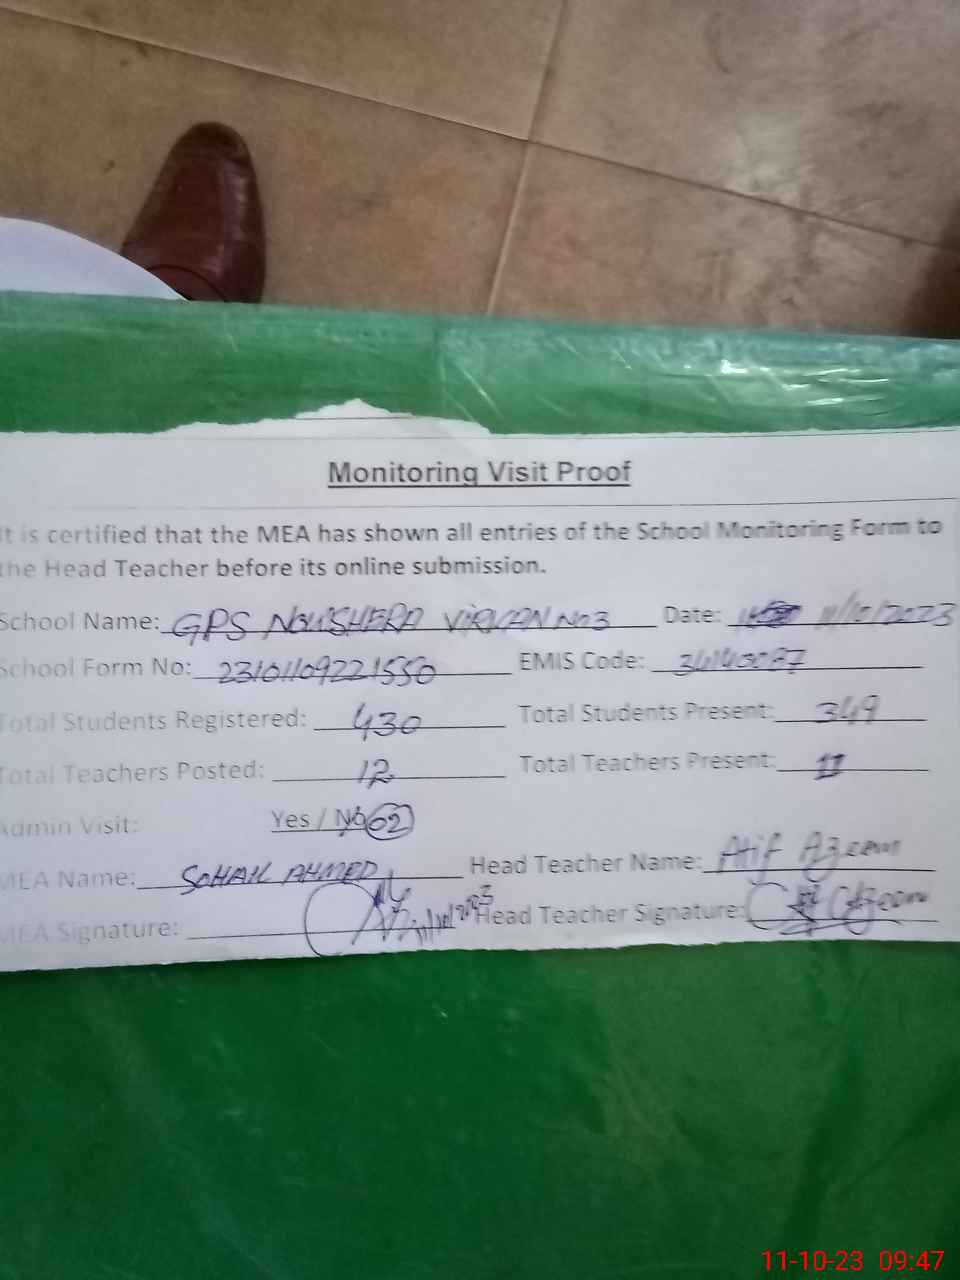 Monitoring Visit Proof
It is certified that the MEA has shown all entries of the School Monitoring Form to
the Head Teacher before its online submission.
School Name: GPS NOWSHERA VIRKAN No3 Date: 11/10/2023
School Form No: 23101109221550 EMIS Code:
Total Students Registered: 430 Total Students Present: 349
Total Teachers Posted: 12 Total Teachers Present: 11
Admin Visit: Yes / No 02
MEA Name: SOHAIL AHMED Head Teacher Name: Atif Azeem
MEA Signature: Head Teacher Signature: Azeem
11-10-23 09:47